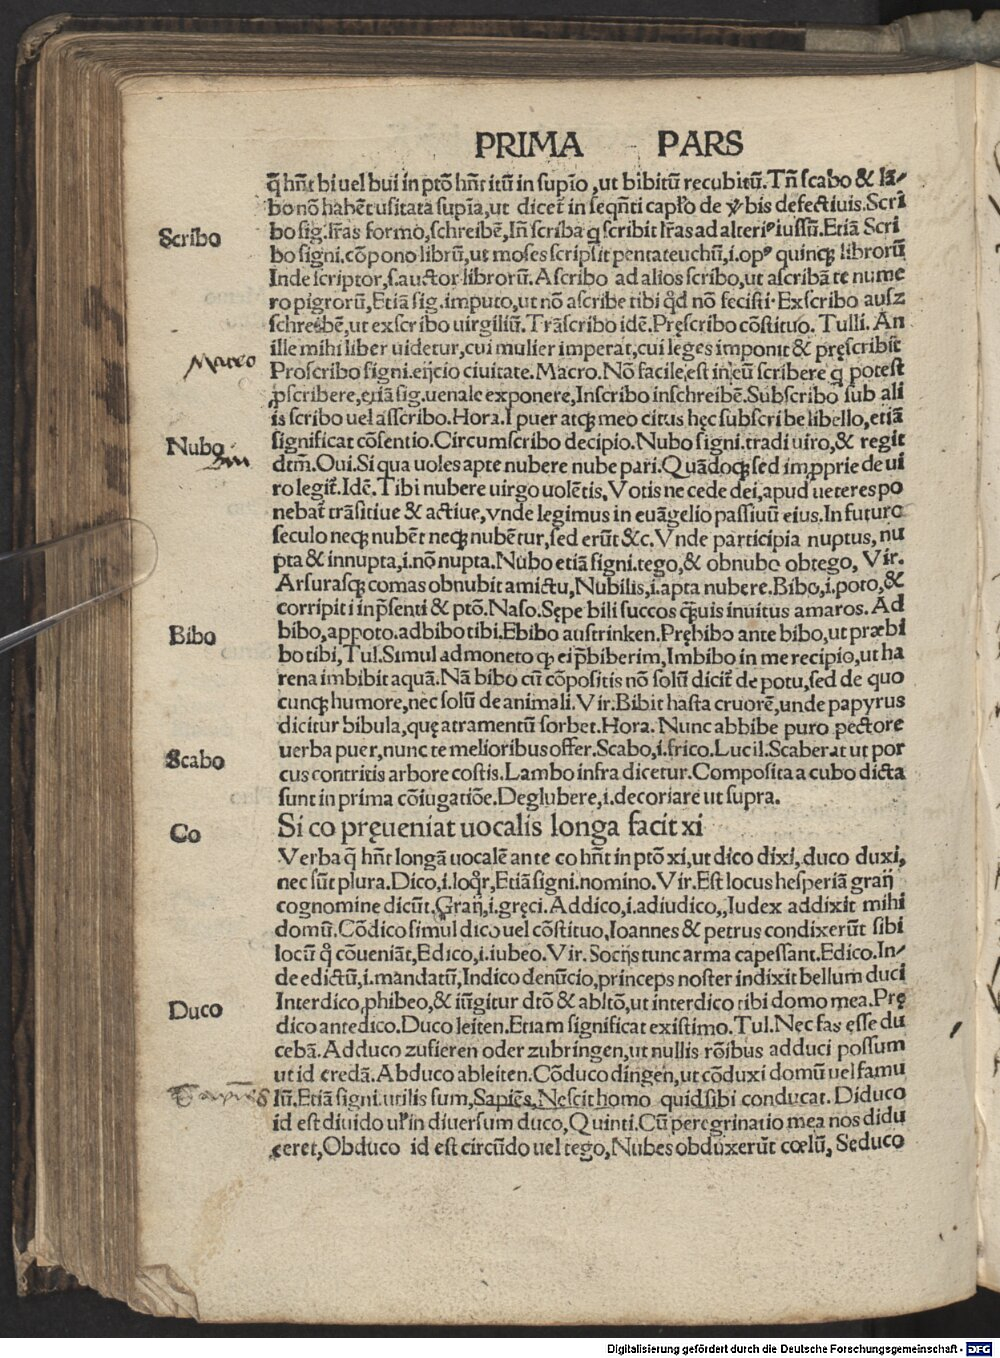 PRIMA PARS
q̄ hn̄t bi uel bui in ptō hn̄t itū in supīo, ut bibitū recubitū. Tn̄ scabo & lā⸗
bo nō habēt usitata supīa, ut dicet̄ in seqn̄ti capl'o de v̄bis defectiuis. Scri
Scribo
bo sig. lr̄as formo, schreibē, In̄ scriba q scribit lr̄as ad alteriꝰ iussū. Etiā Scri
bo signi. cōpono librū, ut moses scripsit pentateuchū, i. opꝰ quinqꝫ librorū
Inde scriptor, s. auctor librorū. Ascribo ad alios scribo, ut ascribā te nume
ro pigrorū, Etiā sig. imputo, ut nō ascribe tibi qd̄ nō fecisti. Exscribo ausz
schreibē, ut exscribo uirgiliū. Trāscribo idē. Pręscribo cōstituo. Tulli. An
ille mihi liber uidetur, cui mulier imperat, cui leges imponit & pręscribit
Macro
Proscribo signi. eijcio ciuitate. Macro. Nō facile est in eū scribere q potest
ꝓscribere, etiā sig. uenale exponere, Inscribo inschreibē. Subscribo sub ali
is scribo uel asscribo. Hora. I puer atqꝫ meo citus hęc subscribe libello, etiā
Nubo
significat cōsentio. Circumscribo decipio. Nubo signi. tradi uiro, & regit
dtm̄. Oui. Si qua uoles apte nubere nube pari. Quādoqꝫ sed imꝓprie de ui
ro legit̄. Idē. Tibi nubere uirgo uolētis, Votis ne cede dei, apud ueteres po
nebat̄ trāsitiue & actiue, vnde legimus in euāgelio passiuū eius. In futuro
seculo neqꝫ nubēt neqꝫ nubētur, sed erūt &c. Vnde participia nuptus, nu
pta & innupta, i. nō nupta. Nubo etiā signi. tego, & obnubo obtego, Vir.
Arsurasqꝫ comas obnubit amictu, Nubilis, i. apta nubere. Bibo, i. poto, &
corripit i in p̄senti & ptō. Naso. Sępe bili succos q̄uis inuitus amaros. Ad
Bibo
bibo, appoto. adbibo tibi. Ebibo austrinken. Prębibo ante bibo, ut præbi
bo tibi, Tul. Simul admoneto ꝙ ei p̄biberim, Imbibo in me recipio, ut ha
rena imbibit aquā. Nā bibo cū cōpositis nō solū dicit̄ de potu, sed de quo
cunqꝫ humore, nec solū de animali. Vir. Bibit hasta cruorē, unde papyrus
dicitur bibula, quę atramentū sorbet. Hora. Nunc abbibe puro pectore
Scabo
uerba puer, nunc te melioribus offer. Scabo, i. frico. Lucil. Scaberat ut por
cus contritis arbore costis. Lambo infra dicetur. Composita a cubo dicta
sunt in prima cōiugatiōe. Deglubere, i. decoriare ut supra.
Co
Si co pręueniat uocalis longa facit xi
Verba q̄ hn̄t longā uocalē ante co hn̄t in ptō xi, ut dico dixi, duco duxi,
nec sūt plura. Dico, i. loqr̄, Etiā signi. nomino. Vir. Est locus hesperiā graij
cognomine dicūt. Graij, i. gręci. Addico, i. adiudico,, Iudex addixit mihi
domū. Cōdico simul dico uel cōstituo, Ioannes & petrus condixerūt sibi
locū q̊ cōueniāt, Edico, i. iubeo. Vir. Socijs tunc arma capessant. Edico. In⸗
de edictū, i. mandatū, Indico denūcio, princeps noster indixit bellum duci
Duco
Interdico, ꝓhibeo, & iūgitur dtō & abltō, ut interdico tibi domo mea. Prę
dico antedico. Duco leiten. Etiam significat existimo. Tul. Nec fas esse du
cebā. Adduco zufieren oder zubringen, ut nullis rōibus adduci possum
ut id credā. Abduco ableiten. Cōduco dingen, ut cōduxi domū uel famu
lū. Etiā signi. utilis sum, Sapiēs, Nescit homo quid sibi conducat. Diduco
id est diuido ul' in diuersum duco, Quinti. Cū peregrinatio mea nos didu
ceret, Obduco id est circūdo uel tego, Nubes obduxerūt cœlū, Seduco
Digitalisierung gefördert durch die Deutsche Forschungsgemeinschaft - DFG